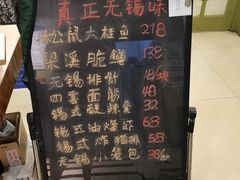 真正无锡味
松鼠大桂鱼 218
梁溪脆鳝 138
无锡排骨 18/块
四喜面筋 48
锡式酸辣羹 32
锡式油爆虾 68
锡式炸猪排 58
无锡小笼包 38/份